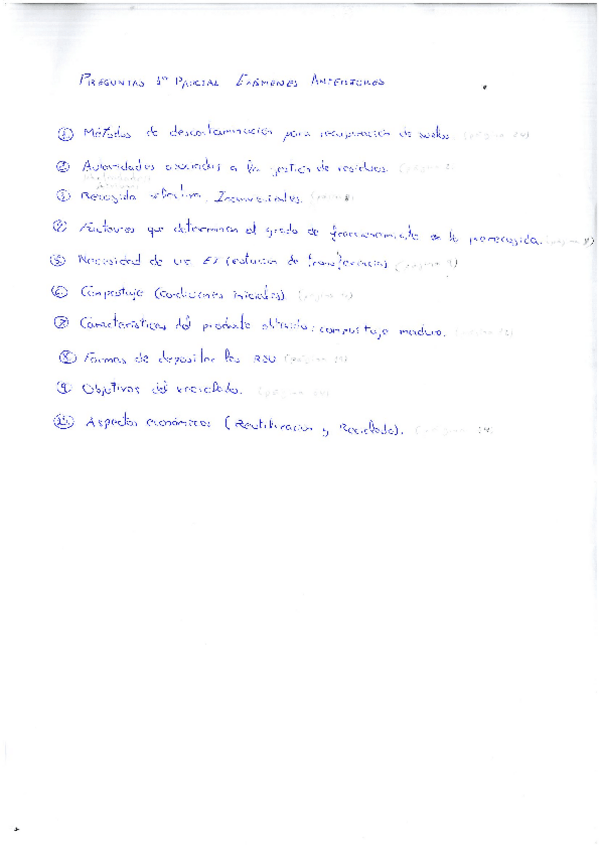 PREGUNTAS 1er PARCIAL EXÁMENES ANTERIORES
① Métodos de descontaminación para recuperación de suelos.
② Autoridades asociadas a la gestión de residuos.
③ Recogida selectiva, Inconvenientes.
④ Factores que determinan el grado de fraccionamiento en la prerrecogida.
⑤ Necesidad de una ET (estación de transferencia)
⑥ Compostaje (condiciones iniciales)
⑦ Características del producto obtenido: compostaje maduro.
⑧ Formas de depositar los RSU
⑨ Objetivos del reciclado.
⑩ Aspectos económicos (Reutilización y Reciclado).